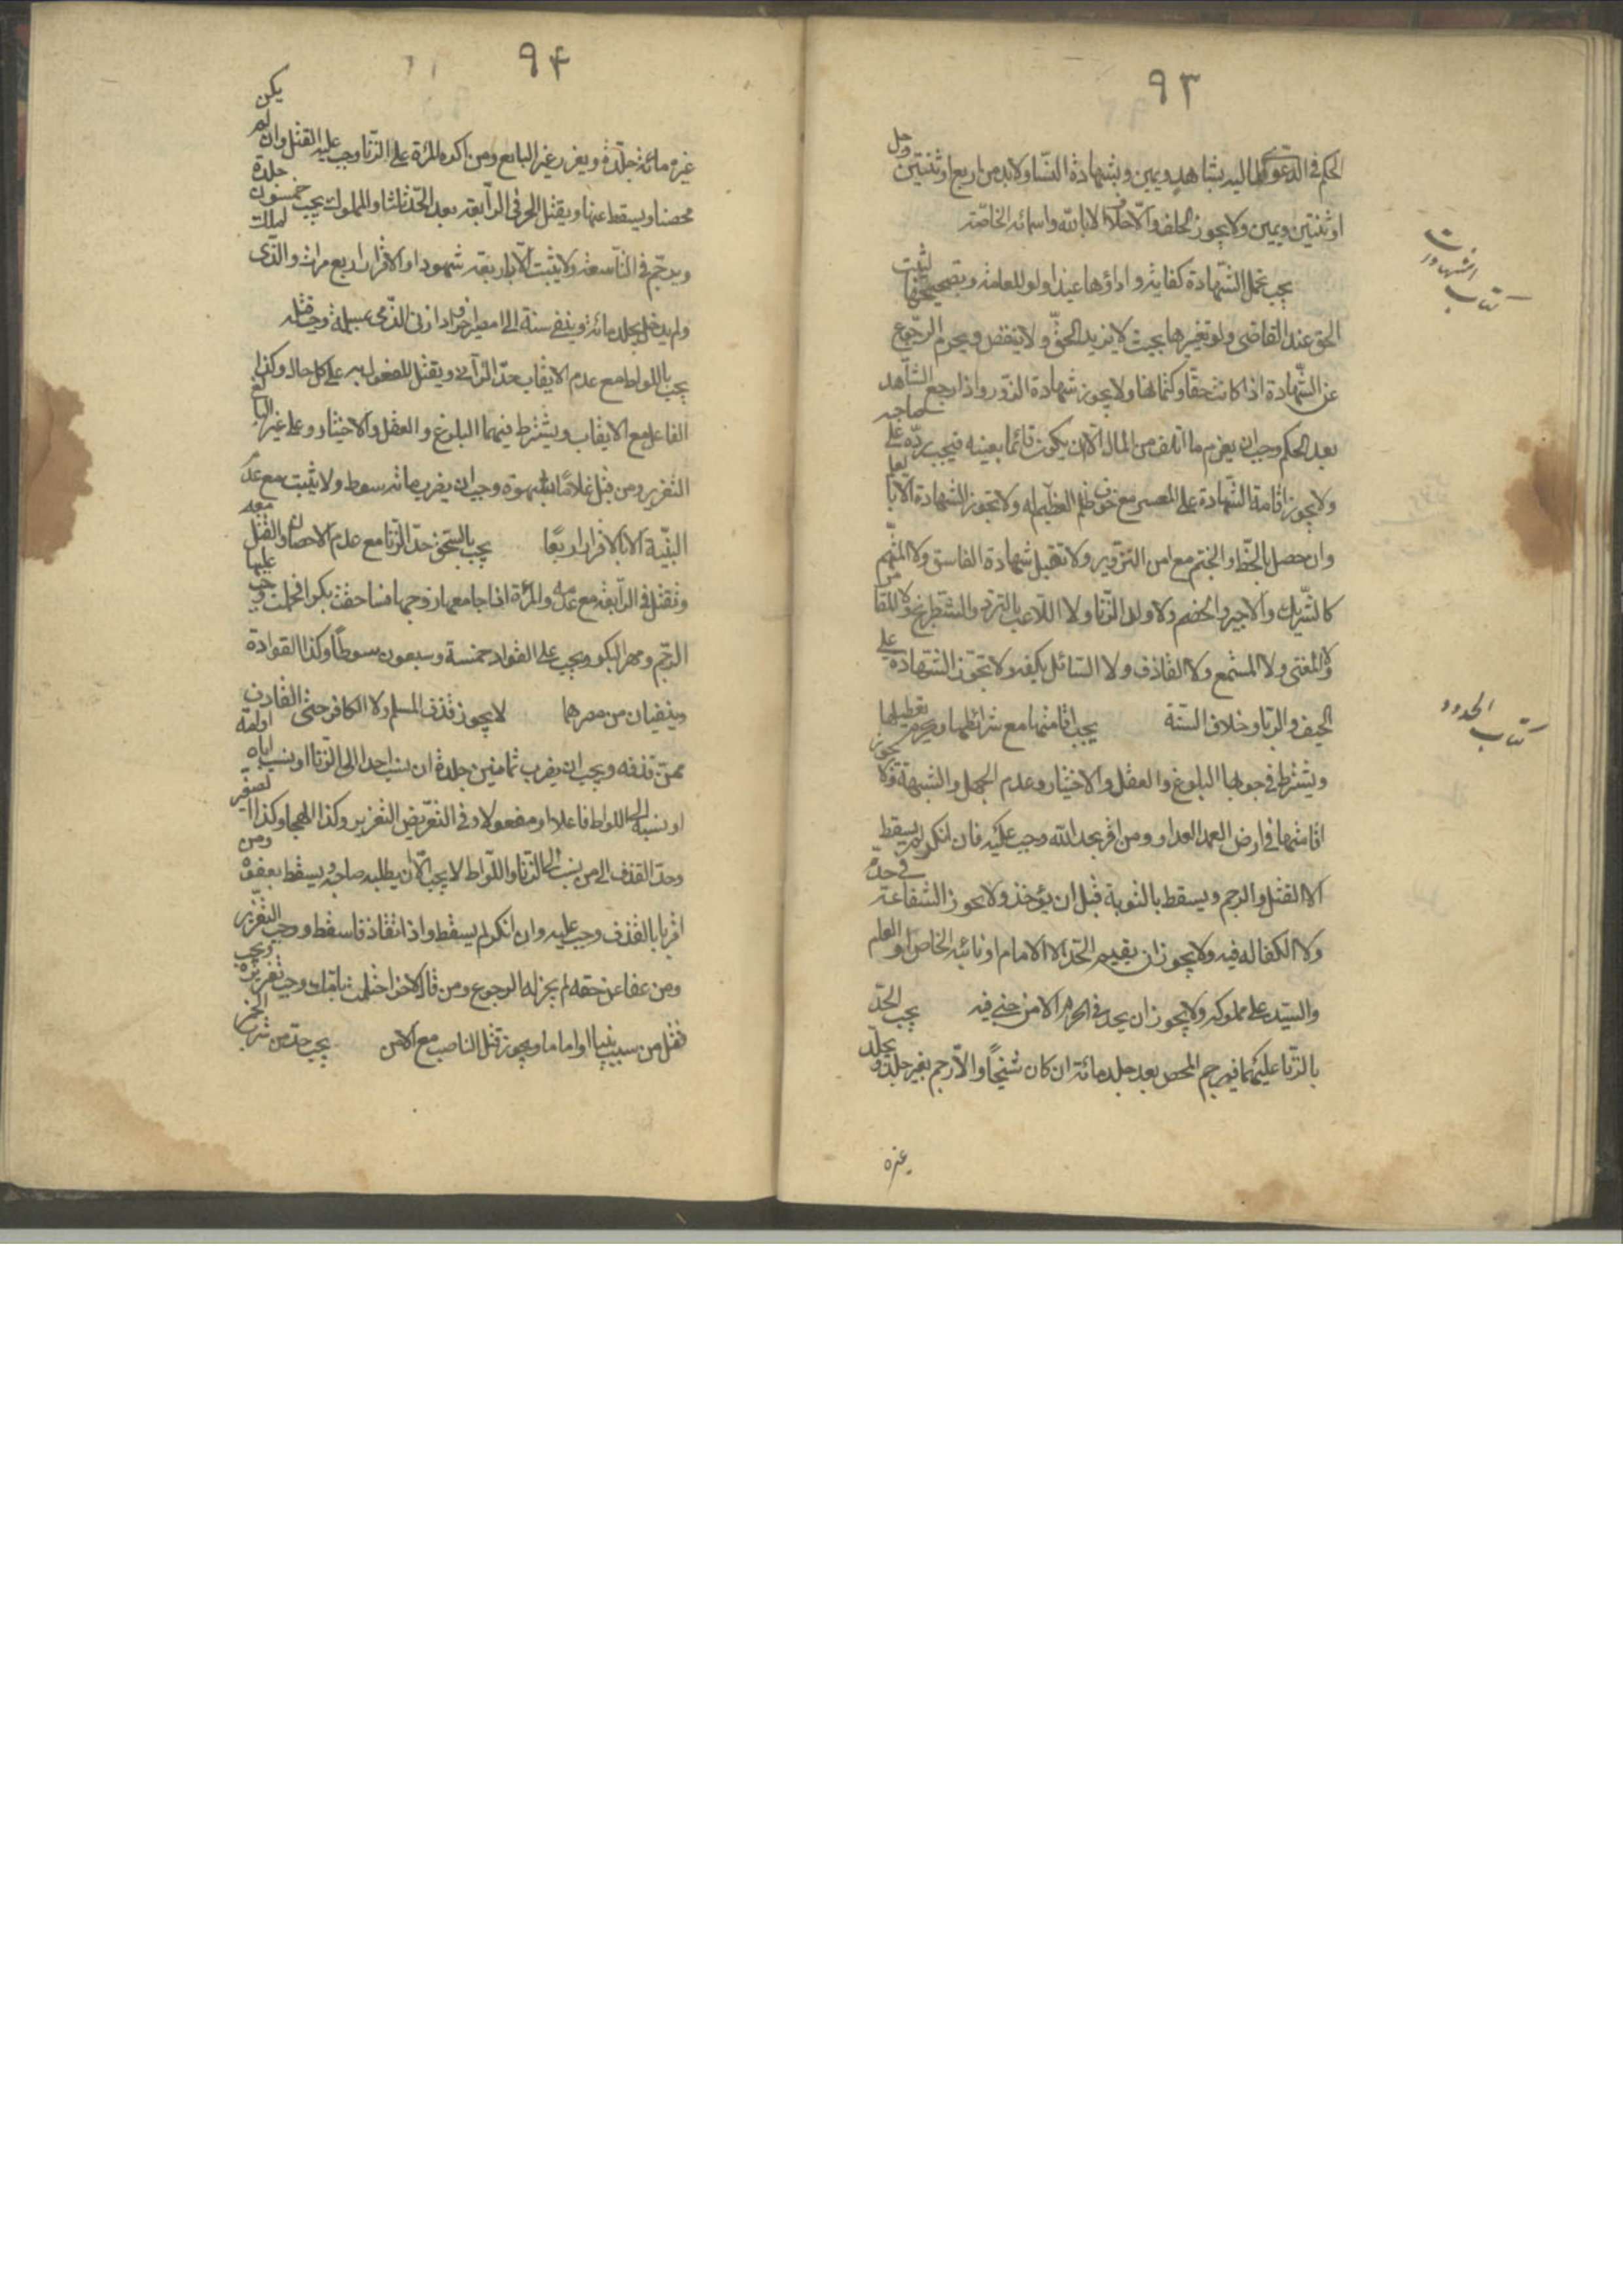 ٩٣
الحكم في الدعوى المالية بشاهد ويمين وبشهادة النساء ولابد من اربع او ثنتين وجل
او ثنتين ويمين ولا يجوز الحلف والاحلاف الا بالله واسمائه الخاصة
كتاب الشهادات
يجب تحمل الشهادة كفاية واداؤها عينا ولو للعامة وتصحيحها ليثبت
الحق عند القاضي ولو بتغييرها بحيث لا يزيد الحق ولا ينقص ويحرم الرجوع
عن الشهادة اذا كانت حقا وكتمانها ولا يجوز شهادة الزور واذا رجع الشاهد
بعد الحكم وجب ان يغرم ما اتلف من المال الا ان يكون قائما بعينه فيجب رده على صاحبه
ولا يجوز اقامة الشهادة على المعسر مع خوف ظلم الغريم له ولا تجوز الشهادة الا بالعلم
وان حصل بالخط والختم مع امن التزوير ولا تقبل شهادة الفاسق ولا المتهم
كالشريك والاجير والخصم ولا ولد الزنا ولا اللاعب بالنرد والشطرنج ولا المقامر
ولا المغنى ولا المستمع ولا القاذف ولا السائل بكفه ولا تجوز الشهادة على
الحيف والربا وخلاف السنة يجب اقامتها مع شرائطها ويحرم تعطيلها
كتاب الحدود
ويشترط في وجوبها البلوغ والعقل والاختيار وعدم الجهل والشبهة ولا يجوز
اقامتها في ارض العدو ومن اقر بحد الله وجب عليه فان انكر لم يسقط
الا القتل والرجم ويسقط بالتوبة قبل ان يؤخذ ولا يجوز الشفاعة في حد
ولا الكفالة فيه ولا يجوز ان يقيم الحد الا الامام او نائبه الخاص او العام
والسيد على مملوكه ولا يجوز ان يحد في الحرم الا من جنى فيه يجب الحد
بالزنا عليهما فيرجم المحصن بعد جلد مائة ان كان شيخا والا رجم بغير جلد ويجلد
غيره
٩٤
غيره مائة جلدة ويعزر غير البالغ ومن اكره المرأة على الزنا وجب عليه القتل وان لم يكن
محصنا ويسقط عنها ويقتل الحر في الرابعة بعد الحد ثلثا والمملوك يجب خمسون جلدة
ويرجم في التاسعة ولا يثبت الا باربعة شهود او الاقرار اربع مرات والذي املك
ولم يدخل يجلد مائة وينفى سنة الى مصر اخر واذا زنى الذمي بمسلمة وجب قتله
يجب باللواط مع عدم الايقاب حد الزاني ويقتل المفعول به على كل حال وكذا
الفاعل مع الايقاب ويشترط فيهما البلوغ والعقل والاختيار وعلى غير البالغ
التعزير ومن قبل غلاما بشهوة وجب ان يضرب مائة سوط ولا يثبت مع عدم
البينة الا بالاقرار اربعا يجب بالسحق حد الزنا مع عدم الاحصان والقتل معه
وتقتل في الرابعة مع عدمه والمرأة اذا جامعها زوجها فساحقت بكرا فحملت وجب عليها
الرجم ومهر البكر ويجب على القواد خمسة وسبعون سوطا وكذا القوادة
وينفيان من مصرهما لا يجوز قذف المسلم ولا الكافر حتى القاذف
ممن قذفه ويجب ان يضرب ثمانين جلدة ان نسب احدا الى الزنا او نسب اباه او امه
او نسبه الى اللواط فاعلا او مفعولا وفي التعريض التعزير وكذا الهجا وكذا
وحد القذف الى من نسب الى الزنا واللواط لا يجب الا ان يطلبه صاحبه ويسقط بعفوه ومن
اقر بالقذف وجب عليه وان انكر لم يسقط واذا تقاذفا سقط ووجب التعزير
ومن عفا عن حقه لم يجز له الرجوع ومن قال لاخر احتلمت بامك وجب تعزيره ويجب
قتل من سب نبيا او اماما ويجوز قتل الناصب مع الامن يجب حد من شرب الخمر